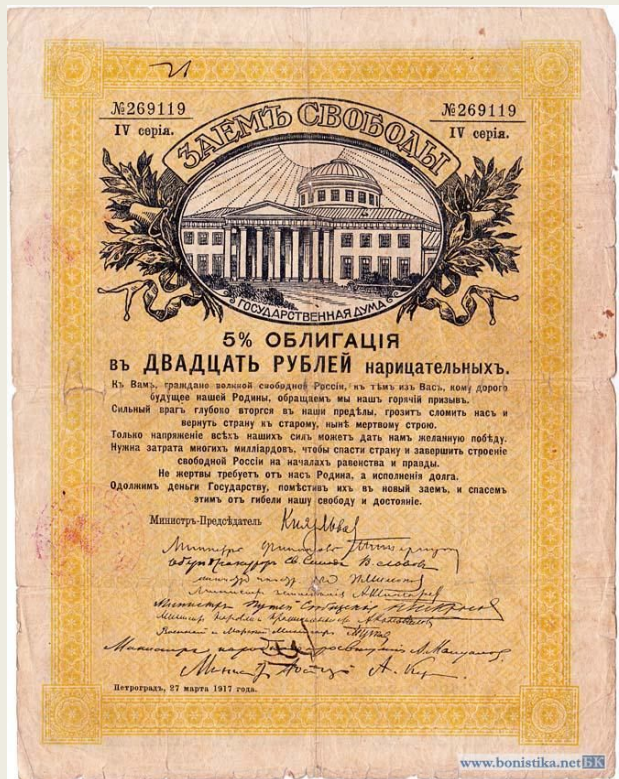 №269119
IV серія.
№269119
IV серія.
ЗАЕМЪ СВОБОДЫ
ГОСУДАРСТВЕННАЯ ДУМА
5% ОБЛИГАЦІЯ
въ ДВАДЦАТЬ РУБЛЕЙ нарицательныхъ.
Къ Вамъ, граждане великой свободной Россіи, къ тѣмъ изъ Васъ, кому дорого
будущее нашей Родины, обращаемъ мы нашъ горячій призывъ.
Сильный врагъ глубоко вторгся въ наши предѣлы, грозитъ сломить насъ и
вернуть страну къ старому, нынѣ мертвому строю.
Только напряженіе всѣхъ нашихъ силъ можетъ дать намъ желанную побѣду.
Нужна затрата многихъ милліардовъ, чтобы спасти страну и завершить строеніе
свободной Россіи на началахъ равенства и правды.
Не жертвы требуетъ отъ насъ Родина, а исполненія долга.
Одолжимъ деньги Государству, помѣстивъ ихъ въ новый заемъ, и спасемъ
этимъ отъ гибели нашу свободу и достояніе.
Министръ-Предсѣдатель Князь Львов
Министръ Финансовъ
Оберъ-Прокуроръ Св. Синода В. Львовъ
Министръ Путей Сообщенія
Военный и Морской Министръ
Министръ народнаго просвѣщенія А. Мануйловъ
Министръ Юстиціи А. Кер
Петроградъ, 27 марта 1917 года.
www.bonistika.net БК